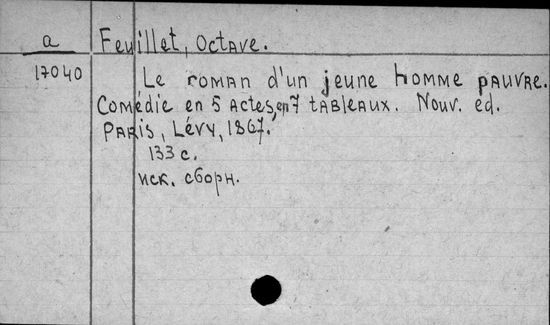 a
Feuillet, Octave.
17040
Le roman d'un jeune homme pauvre.
Comédie en 5 actes, en 7 tableaux. Nouv. éd.
Paris, Lévy, 1867.
133 c.
иск. сборн.